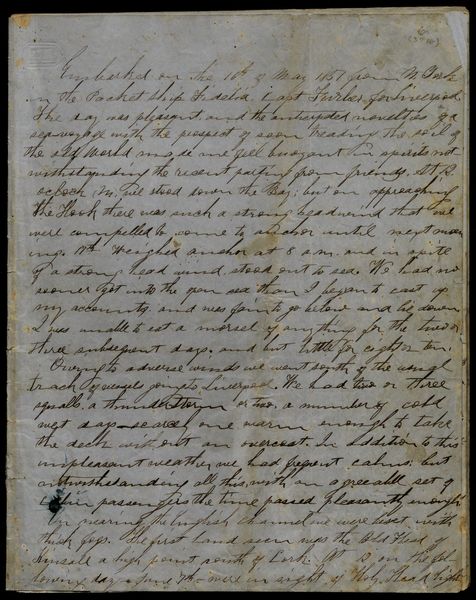 Embarked on the 16th of May 1851 from N. York
in the Packet ship Fidelia, Capt Furber for Liverpool
The day was pleasant and the anticipated novelties of a
sea voyage with the prospect of soon treading the soil of
the old World made me feel buoyant in spirits not-
withstanding the resent parting from friends. At
oclock P.M. we stood down the Bay; but on approaching
the Hook there was such a strong head wind that we
were compelled to come to anchor until next morn-
ing. 17th Weighed anchor at 8 a.m. and in spite
of a strong head wind stood out to sea. We had no
sooner got into the open sea than I began to cast up
my accounts and was fain to go below and lie down
I was unable to eat a morsel of anything for the two or
three subsequent days, and but little for eight or ten.
Owing to adverse winds we went south of the usual
track of vessels going to Liverpool. We had two or three
squalls, a thunder storm or two, a number of cold
wet days scarce one warm enough to take
the deck without an overcoat. In addition to this
unpleasant weather, we had frequent calms: but
notwithstanding all this, with an agreeable set of
cabin passengers the time passed pleasantly enough
In nearing the English channel we were beset with
thick fogs. The first land seen was the Old Head of
Kinsale a high point south of Cork. At on the fol-
lowing day June 7th were in sight of Holy Head Light